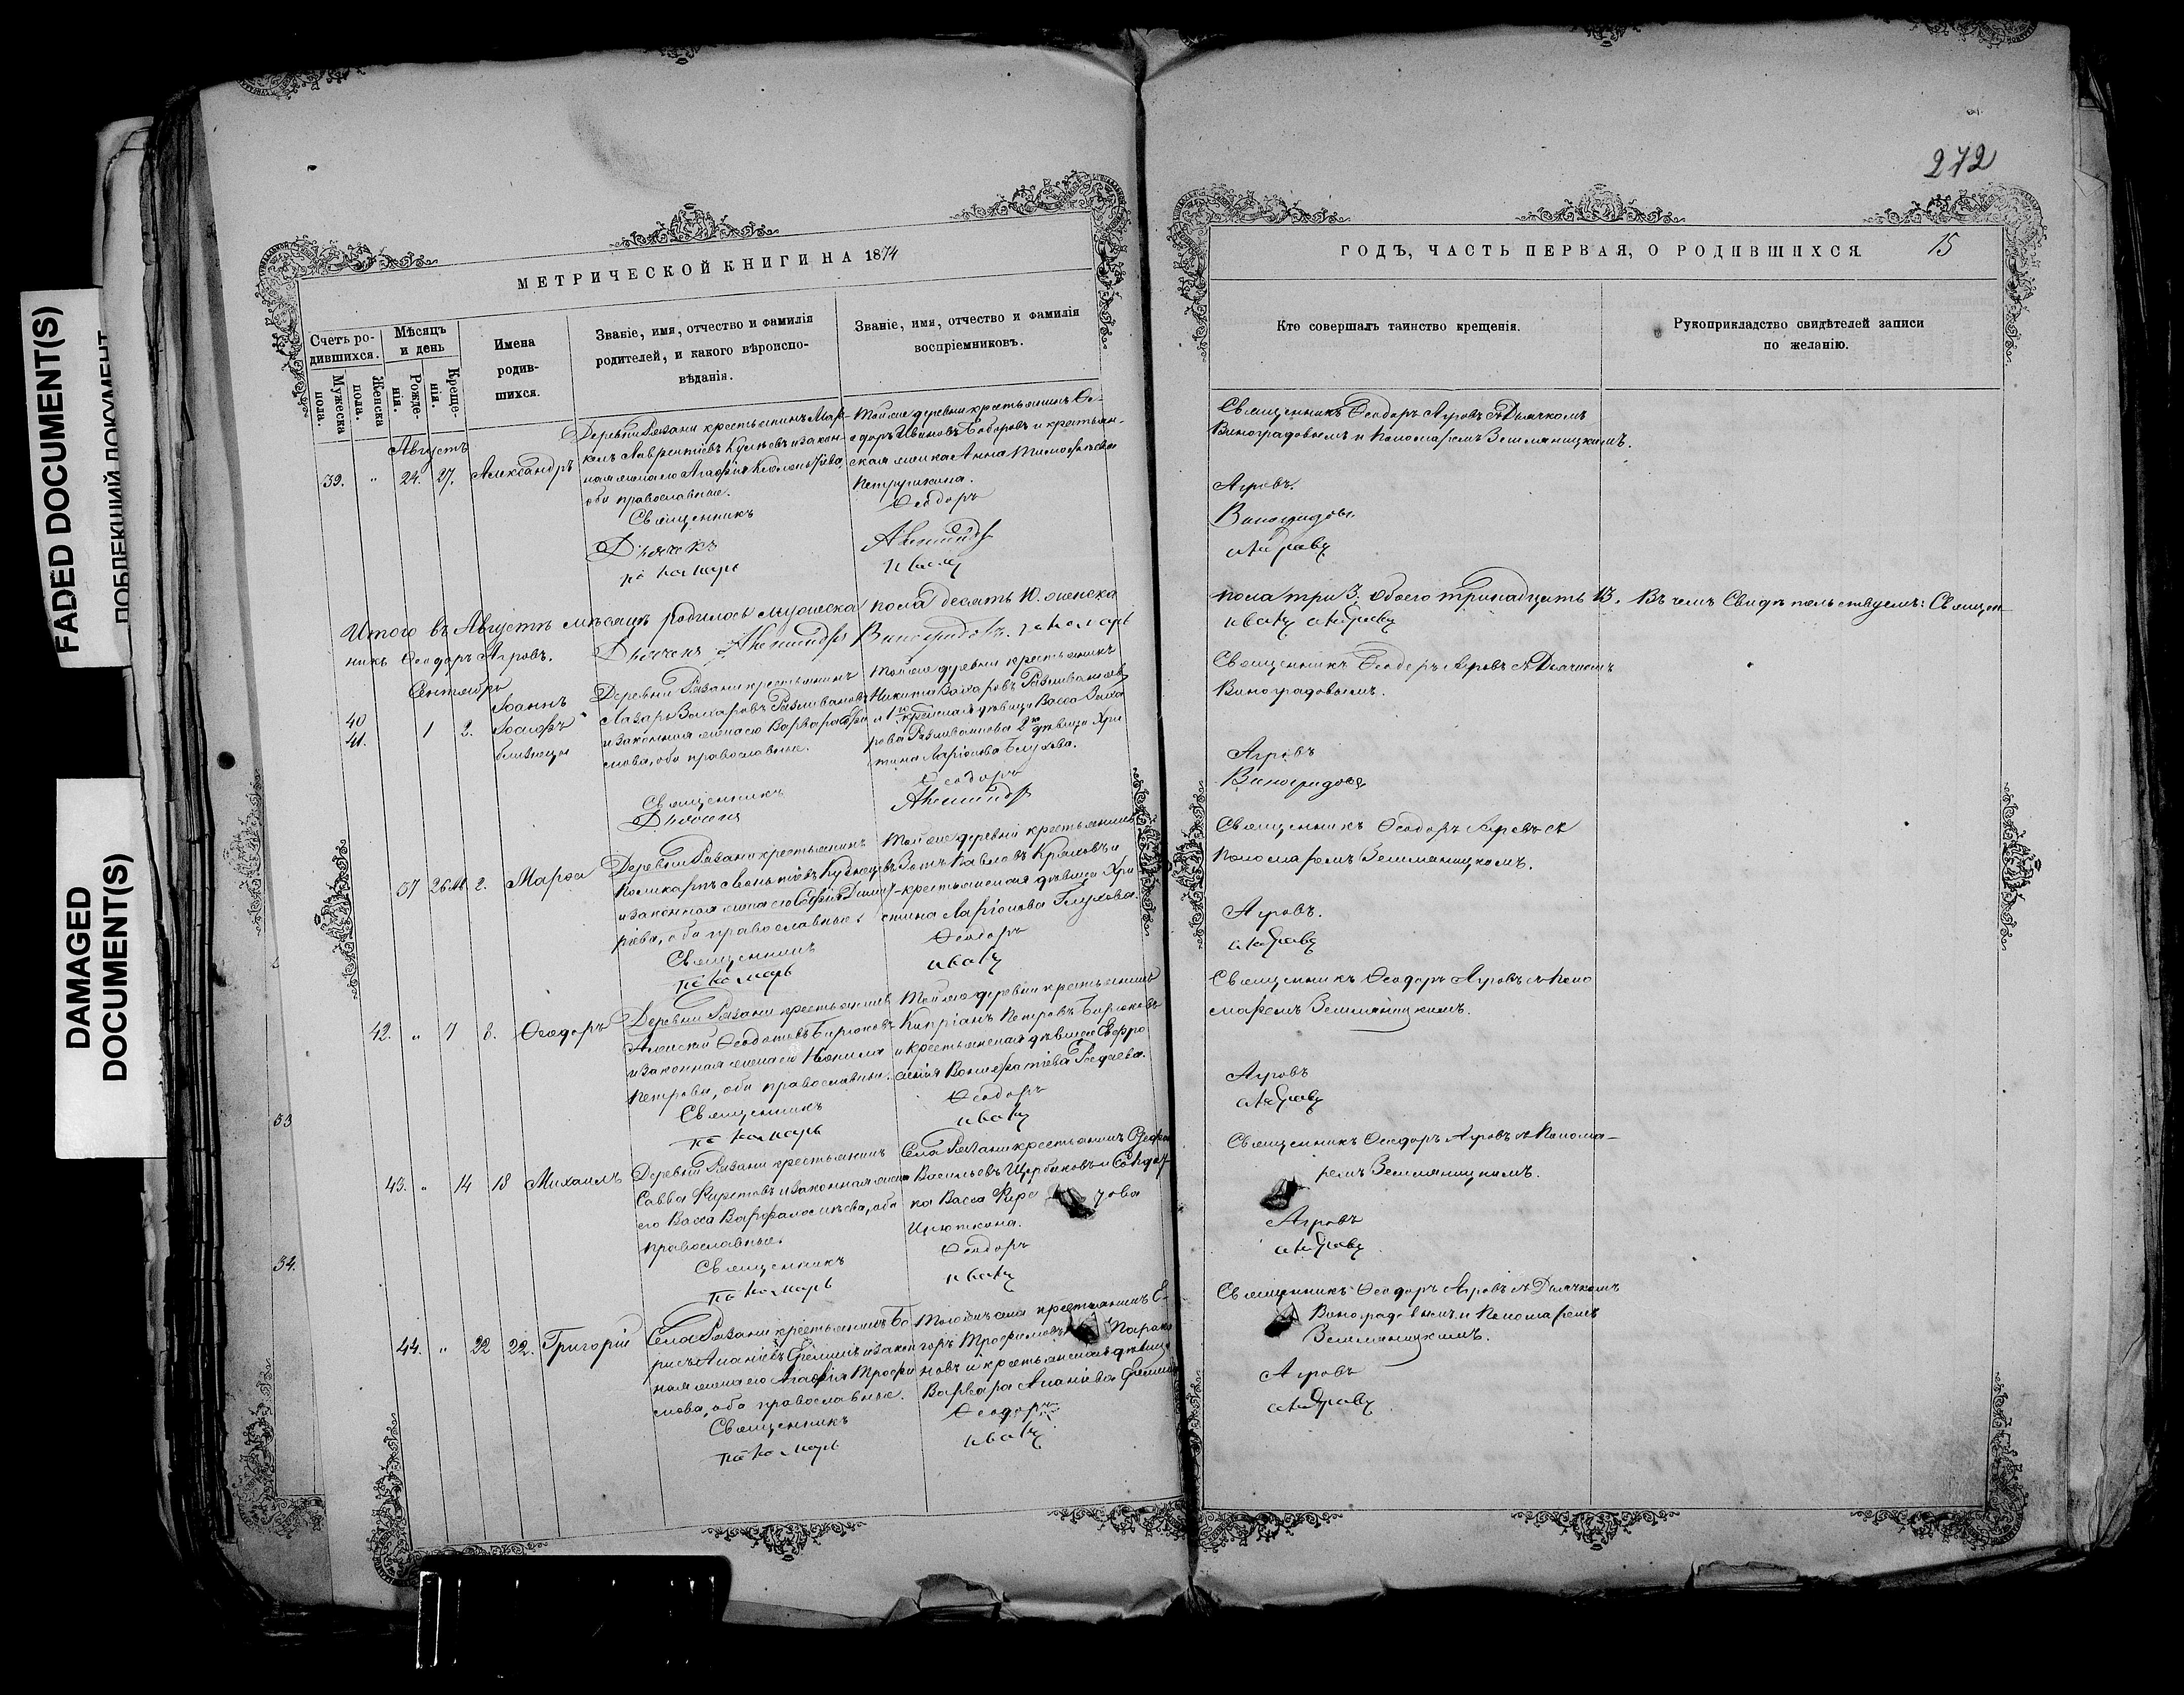 FADED DOCUMENT(S)
DAMAGED
DOCUMENT(S)
272
МЕТРИЧЕСКОЙ КНИГИ НА 1874
ГОДЪ, ЧАСТЬ ПЕРВАЯ, О РОДИВШИХСЯ. 15
Счетъ ро-
дившихся.
Мужеска
пола.
Женска
пола.
Мѣсяцъ
и день
Рожде-
нія.
Креще-
нія.
Имена
родив-
шихся.
Званіе, имя, отчество и фамилія
родителей, и какого вѣроиспо-
вѣданія.
Званіе, имя, отчество и фамилія
воспріемниковъ.
Кто совершалъ таинство крещенія.
Рукоприкладство свидѣтелей записи
по желанію.
Августъ
39. " 24. 27. Александръ
Деревни Рязани крестьянинъ Мар-
ная жена его Агафія
оба православные.
Священникъ
Дьячекъ
пономарь
Тойже деревни крестьянинъ Ѳе-
одоръ Ивановъ Бобровъ и крестьян-
ская женка Анна Тимофѣева
Петрушкина.
Ѳеодоръ
Иванъ
Священникъ Ѳеодоръ Агровъ съ Дьячкомъ
Виноградовымъ и Пономаремъ Земляницкимъ.
Агровъ.
Виноградовъ
Итого въ Августѣ мѣсяцѣ родилось мужеска пола десять 10. женска
пола три 3. обоего тринадцать 13. Въ чемъ Свидѣтельствуемъ: Священ-
никъ Ѳеодоръ Агровъ. Дьячекъ Виноградовъ. пономарь
Иванъ
Сентябрь
40
41. 1 2. Іоаннъ
Іосифъ
близнецы
Деревни Рязани крестьянинъ
Лазарь Захаровъ
и законная жена его Варвара
мова, оба православные.
Священникъ
Дьячекъ
Тойже деревни крестьянинъ
Никита Захаровъ
дѣвица Васса Заха
рова 2го дѣвица Хри
стина Ларіонова Глухова.
Ѳеодоръ
Священникъ Ѳеодоръ Агровъ съ Дьячкомъ
Виноградовымъ.
Агровъ
Виноградовъ
37 26 Ав 2. Марѳа
Деревни Рязани крестьянинъ
Поликарпъ Кузнецовъ
и законная жена его Софія Димит-
ріева, оба православные.
Священникъ
пономарь
Тойже деревни крестьянинъ
Зотъ Павловъ Крыловъ и
крестьянская дѣвица Хри-
стина Ларіонова Глухова.
Ѳеодоръ
Иванъ
Священникъ Ѳеодоръ Агровъ съ
Пономаремъ Земляницкимъ.
Агровъ.
42. " 7 8. Ѳеодоръ
Деревни Рязани крестьянинъ
Алексѣй Ѳеодотовъ Бирюковъ
и законная жена его Неонила
Петрова, оба православные.
Священникъ
пономарь
Тойже деревни крестьянинъ
Кипріанъ Петровъ Бирюковъ
и крестьянская дѣвица Евфро
синія Вонифатіева
Ѳеодоръ
Иванъ
Священникъ Ѳеодоръ Агровъ съ Поно
маремъ Земляницкимъ.
Агровъ
43. " 14 18 Михаилъ
Деревни Рязани крестьянинъ
Савва и законная жена
его Васса Варфаломѣева, оба
православные.
Священникъ
пономарь
Села Рязани крестьянинъ
Васильевъ Щербаковъ и Солдат-
ка Васса
Ѳеодоръ
Иванъ
Священникъ Ѳеодоръ Агровъ съ Понома-
ремъ Земляницкимъ.
Агровъ
44. " 22 22. Григорій
Села Рязани крестьянинъ Бо
рисъ Ананіевъ и закон
ная жена его Агафія Трофи
мова, оба православные.
Священникъ
пономарь
Тогожъ села крестьянинъ Е-
горъ Трофимовъ
новъ и крестьянская дѣвица
Варвара Ананіева
Ѳеодоръ
Иванъ
Священникъ Ѳеодоръ Агровъ съ Дьячкомъ
Виноградовымъ и Пономаремъ
Земляницкимъ.
Агровъ
33
34.